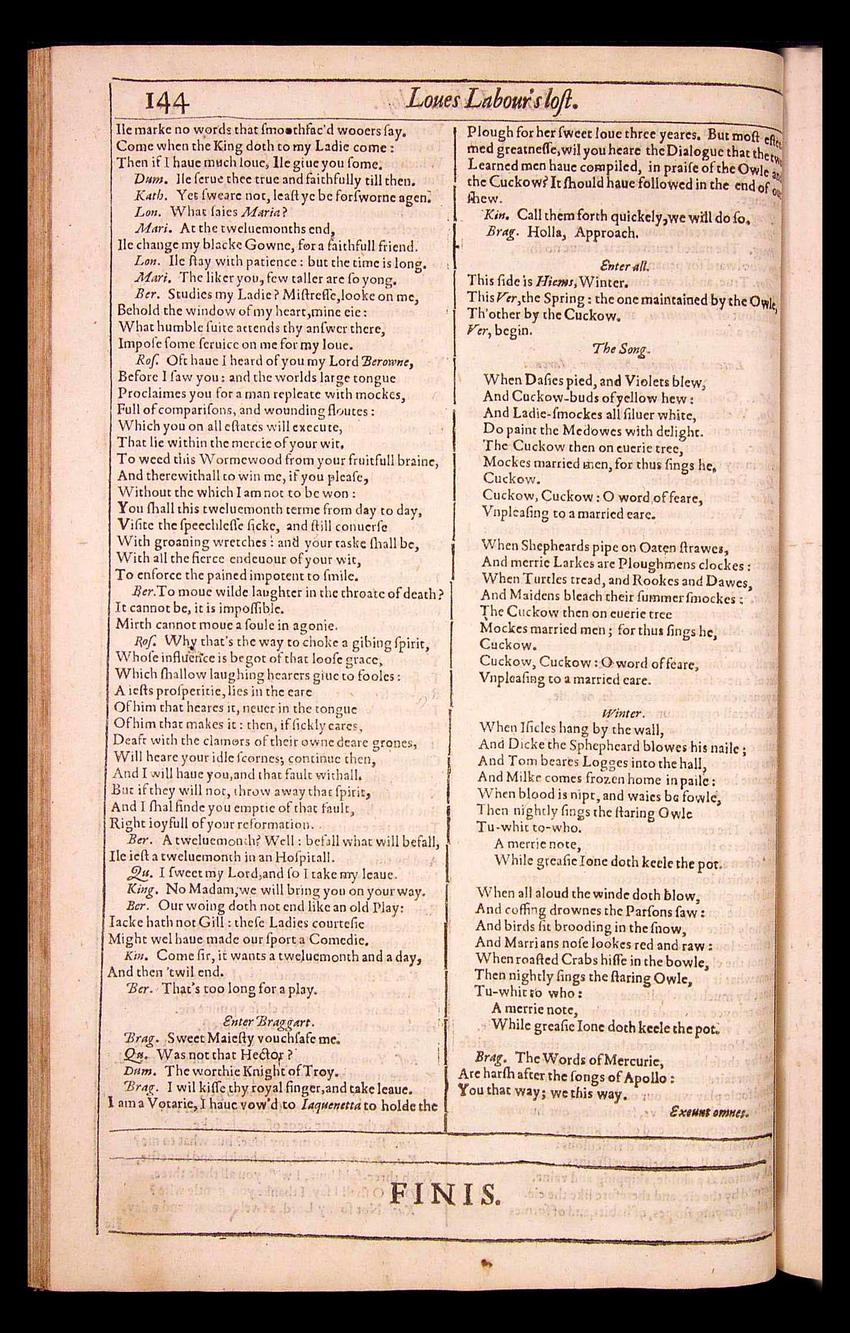 144
Loues Labour's lost.
Ile marke no words that smoothfac'd wooers say.
Come when the King doth to my Ladie come :
Then if I haue much loue, Ile giue you some.
Dum. Ile serue thee true and faithfully till then.
Kath. Yet sweare not, least ye be forsworne agen.
Lon. What saies Maria ?
Mari. At the tweluemonths end,
Ile change my blacke Gowne, for a faithfull friend.
Lon. Ile stay with patience : but the time is long.
Mari. The liker you, few taller are so yong.
Ber. Studies my Ladie ? Mistresse, looke on me,
Behold the window of my heart, mine eie :
What humble suite attends thy answer there,
Impose some seruice on me for my loue.
Ros. Oft haue I heard of you my Lord Berowne,
Before I saw you : and the worlds large tongue
Proclaimes you for a man repleate with mockes,
Full of comparisons, and wounding floutes :
Which you on all estates will execute,
That lie within the mercie of your wit.
To weed this Wormewood from your fruitfull braine,
And therewithall to win me, if you please,
Without the which I am not to be won :
You shall this tweluemonth terme from day to day,
Visite the speechlesse sicke, and still conuerse
With groaning wretches : and your taske shall be,
With all the fierce endeuour of your wit,
To enforce the pained impotent to smile.
Ber. To moue wilde laughter in the throate of death ?
It cannot be, it is impossible.
Mirth cannot moue a soule in agonie.
Ros. Why that's the way to choke a gibing spirit,
Whose influence is begot of that loose grace,
Which shallow laughing hearers giue to fooles :
A iests prosperitie, lies in the eare
Of him that heares it, neuer in the tongue
Of him that makes it : then, if sickly eares,
Deaft with the clamors of their owne deare grones,
Will heare your idle scornes; continue then,
And I will haue you, and that fault withall.
But if they will not, throw away that spirit,
And I shal finde you emptie of that fault,
Right ioyfull of your reformation.
Ber. A tweluemonth ? Well : befall what will befall,
Ile iest a tweluemonth in an Hospitall.
Qu. I sweet my Lord, and so I take my leaue.
King. No Madam, we will bring you on your way.
Ber. Our woing doth not end like an old Play:
Iacke hath not Gill : these Ladies courtesie
Might wel haue made our sport a Comedie.
Kin. Come sir, it wants a tweluemonth and a day,
And then 'twil end.
Ber. That's too long for a play.
Enter Braggart.
Brag. Sweet Maiesty vouchsafe me.
Qu. Was not that Hector ?
Dum. The worthie Knight of Troy.
Brag. I wil kisse thy royal finger, and take leaue.
I am a Votarie, I haue vow'd to Iaquenetta to holde the
Plough for her sweet loue three yeares. But most
med greatnesse, wil you heare the Dialogue that the
Learned men haue compiled, in praise of the Owle and
the Cuckow? It should haue followed in the end of our
shew.
Kin. Call them forth quickely, we will do so.
Brag. Holla, Approach.
Enter all.
This side is Hiems, Winter.
This Ver, the Spring : the one maintained by the Owle,
Th'other by the Cuckow.
Ver, begin.
The Song.
When Dasies pied, and Violets blew,
And Cuckow-buds of yellow hew :
And Ladie-smockes all siluer white,
Do paint the Medowes with delight.
The Cuckow then on euerie tree,
Mockes married men, for thus sings he,
Cuckow.
Cuckow, Cuckow : O word of feare,
Vnpleasing to a married eare.
When Shepheards pipe on Oaten strawes,
And merrie Larkes are Ploughmens clockes :
When Turtles tread, and Rookes and Dawes,
And Maidens bleach their summer smockes :
The Cuckow then on euerie tree
Mockes married men ; for thus sings he,
Cuckow.
Cuckow, Cuckow : O word of feare,
Vnpleasing to a married eare.
Winter.
When Isicles hang by the wall,
And Dicke the Sphepheard blowes his naile ;
And Tom beares Logges into the hall,
And Milke comes frozen home in paile :
When blood is nipt, and waies be fowle,
Then nightly sings the staring Owle
Tu-whit to-who.
A merrie note,
While greasie Ione doth keele the pot.
When all aloud the winde doth blow,
And coffing drownes the Parsons saw :
And birds sit brooding in the snow,
And Marrians nose lookes red and raw :
When roasted Crabs hisse in the bowle,
Then nightly sings the staring Owle,
Tu-whit to who :
A merrie note,
While greasie Ione doth keele the pot.
Brag. The Words of Mercurie,
Are harsh after the songs of Apollo :
You that way ; we this way.
Exeunt omnes.
FINIS.